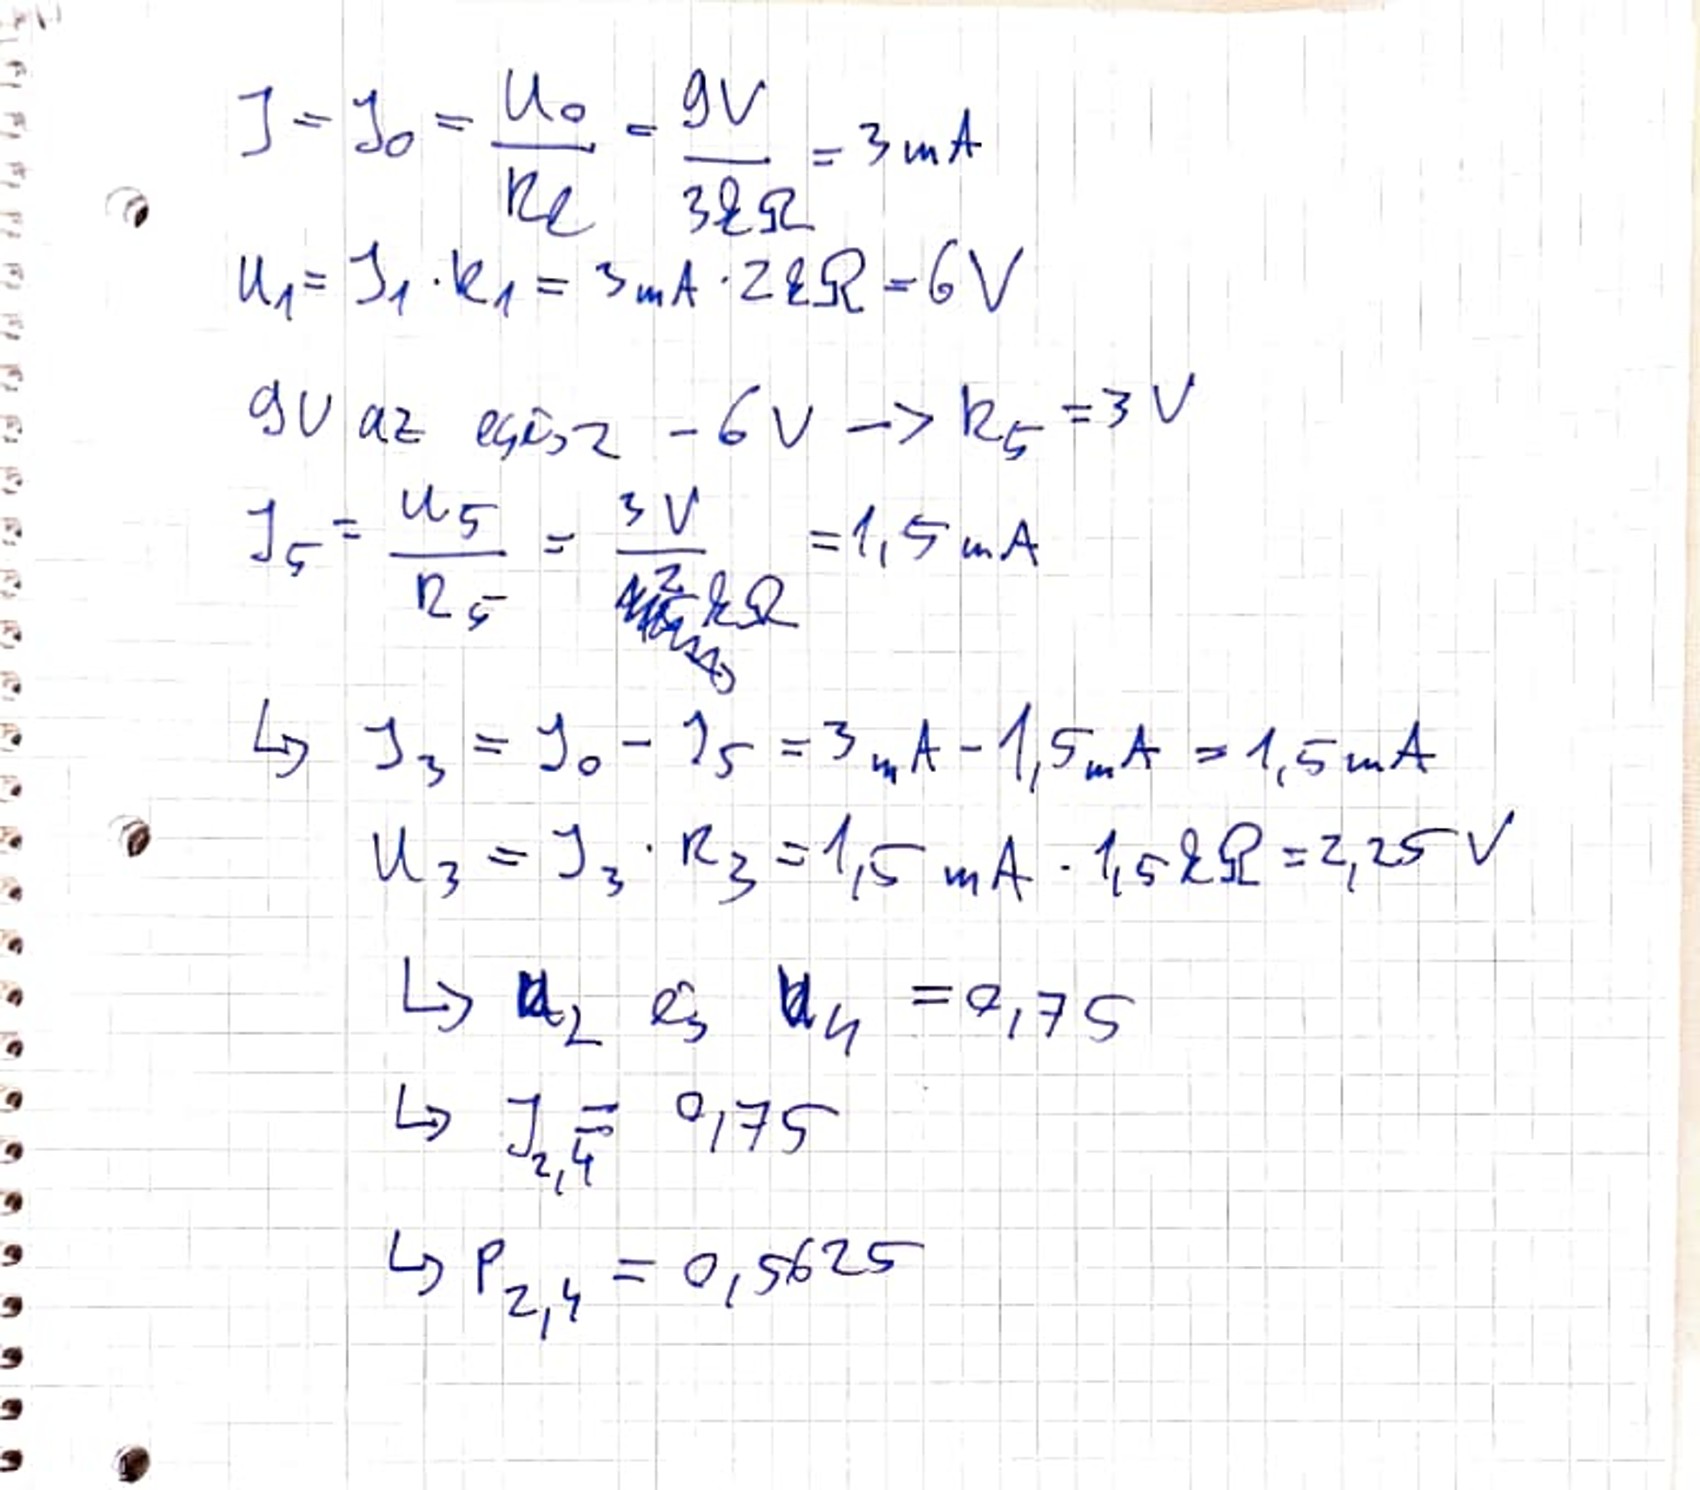 I = I₀ = U₀ / Re = 9V / 3kΩ = 3mA
U₁ = I₁ · R₁ = 3mA · 2kΩ = 6V
9V az egész - 6V -> R₅ = 3V
I₅ = U₅ / R₅ = 3V / 2kΩ = 1,5mA
↳ I₃ = I₀ - I₅ = 3mA - 1,5mA = 1,5mA
U₃ = I₃ · R₃ = 1,5mA · 1,5kΩ = 2,25V
↳ U₂ és U₄ = 0,75
↳ I₂,₄ = 0,75
↳ P₂,₄ = 0,5625